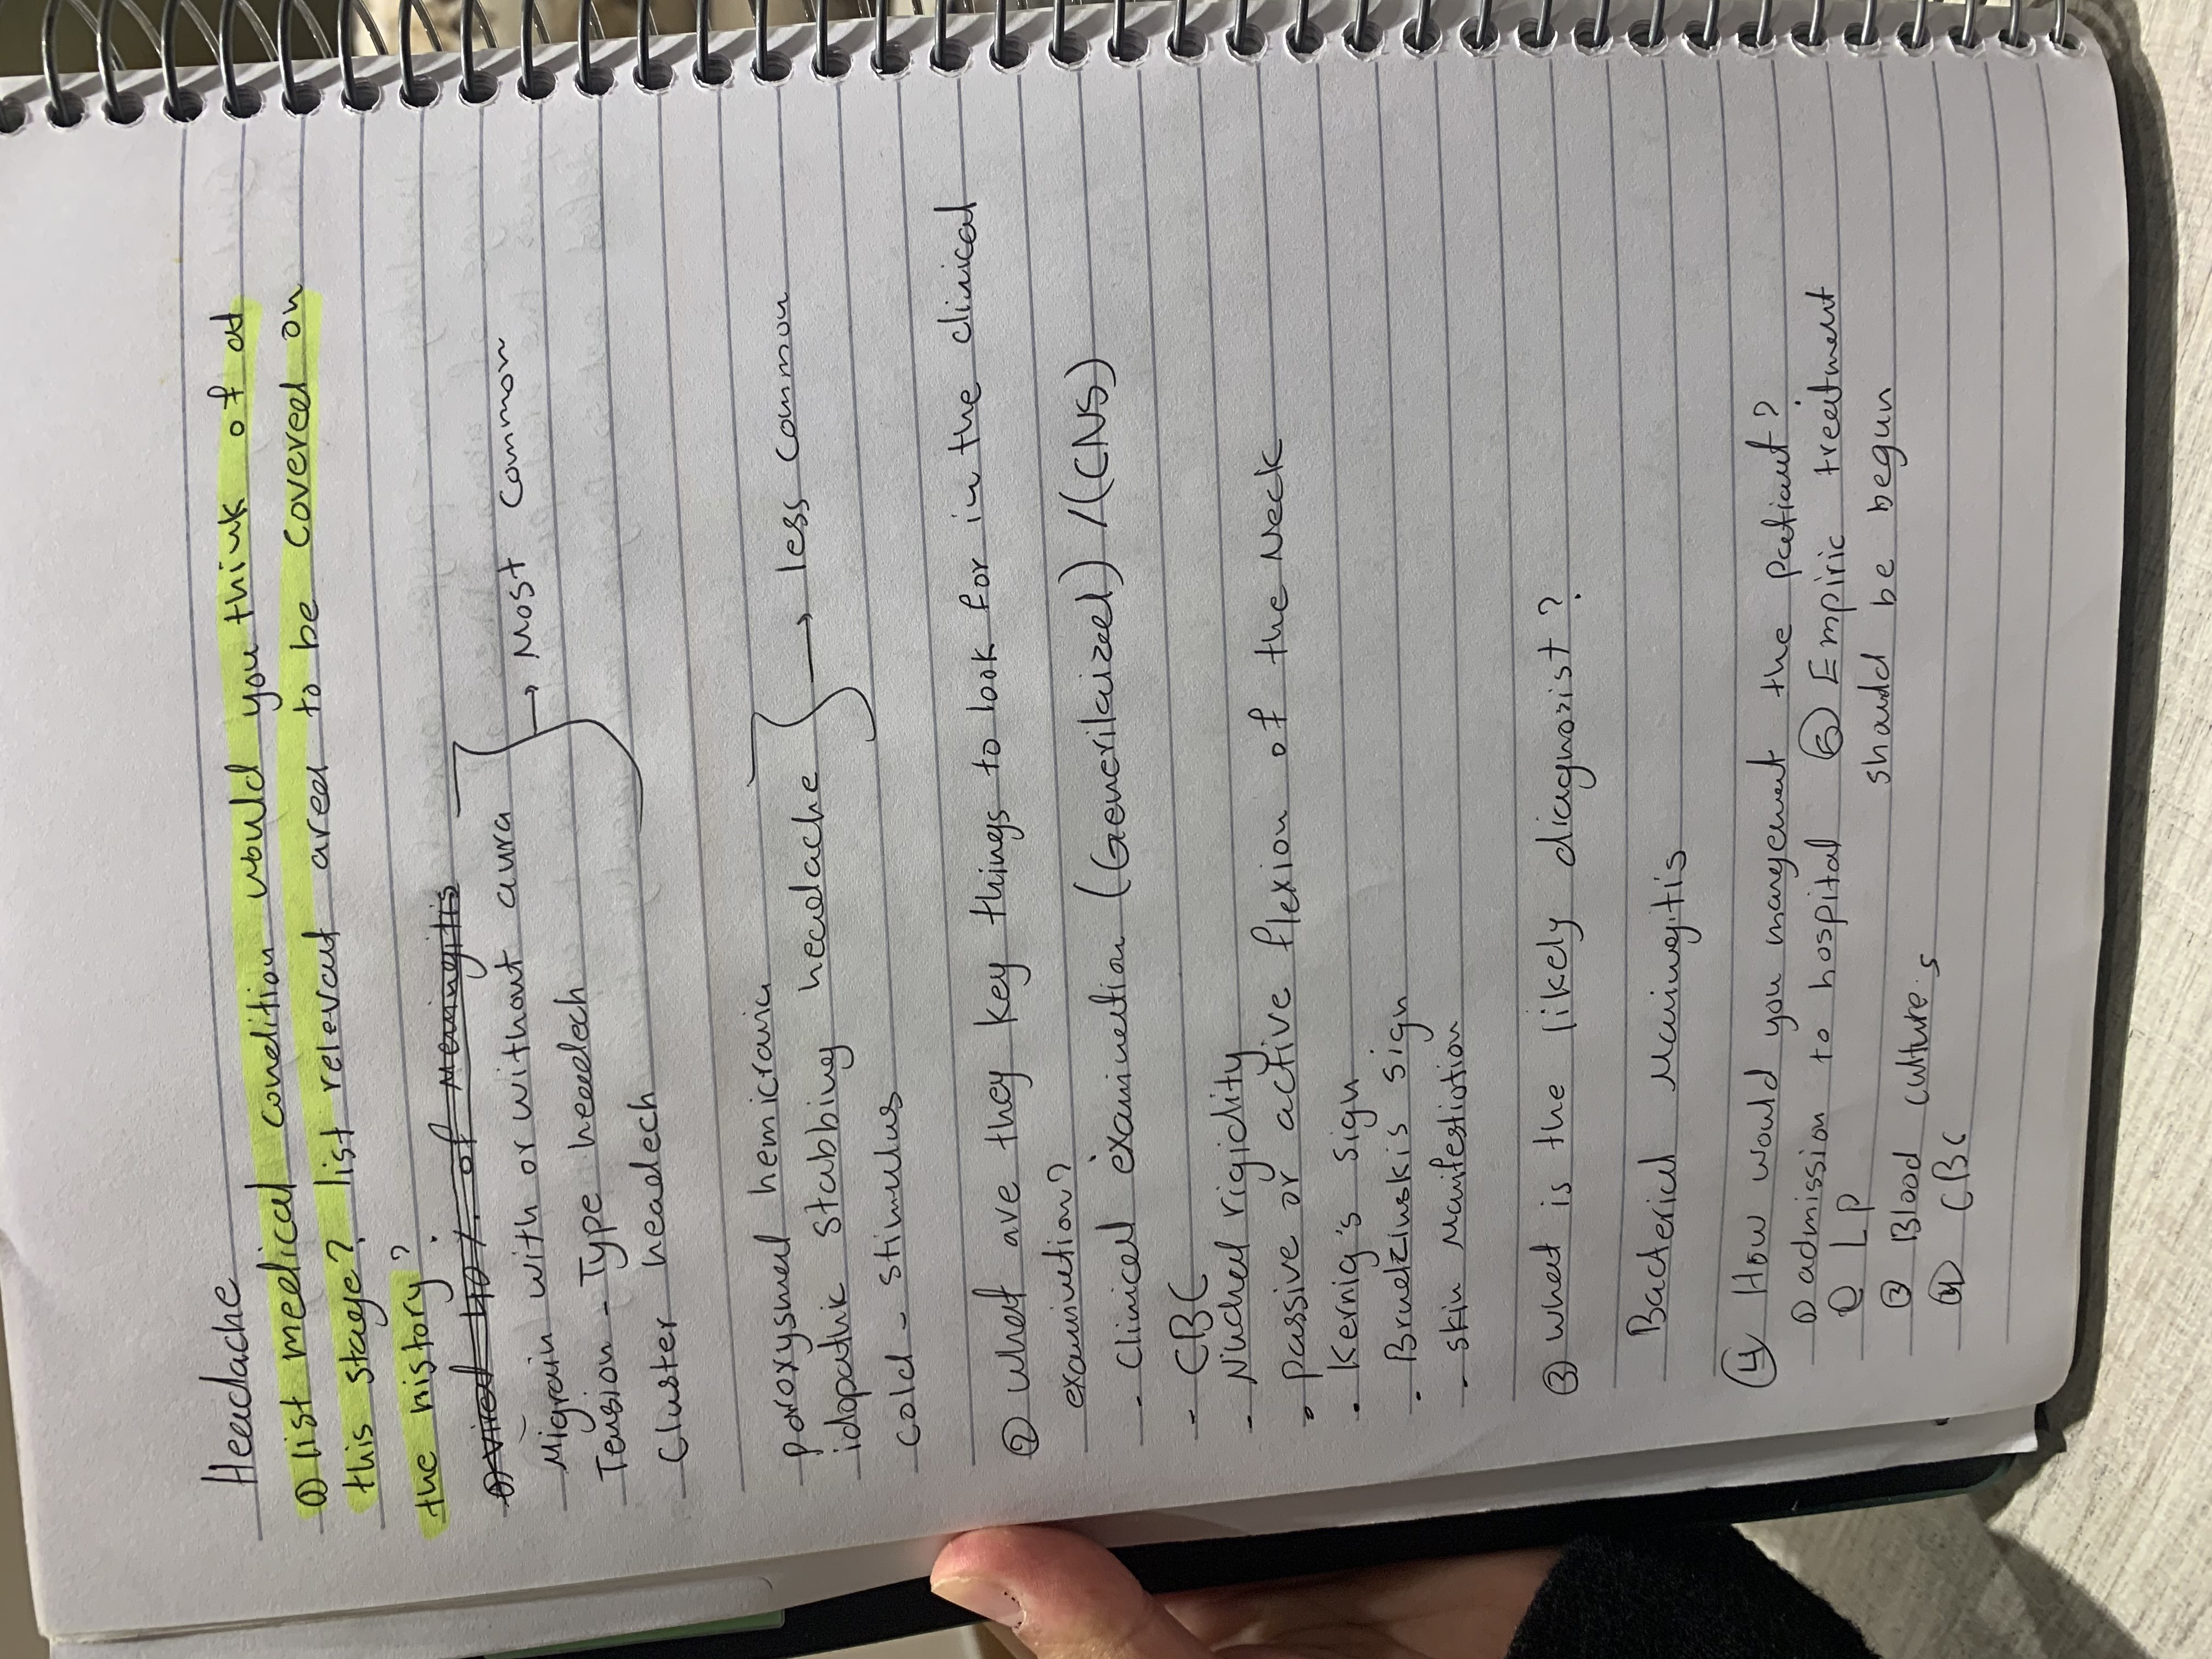 Headache
① list medical condition would you think of at
this stage? list relevant ared to be covered on
the history?
Migrain with or without aura → Most Common
Tension - Type headech
Cluster headech
paroxysmal hemicrania
idopathic stabbing headache → less common
cold - stimulus
② what are they key things to look for in the clinical
examination?
- clinical examination (Generilaized) / (CNS)
- CBC
- Nuchal rigidity
• passive or active flexion of the neck
• Kernig's sign
• Brudzinskis sign
- skin manifestiation
③ what is the likely diagnozist?
Bacterial Maningitis
④ How would you mangement the patiant?
① admission to hospital ⑤ Empiric treatment
should be begun
② LP
③ Blood cultures
④ CBC